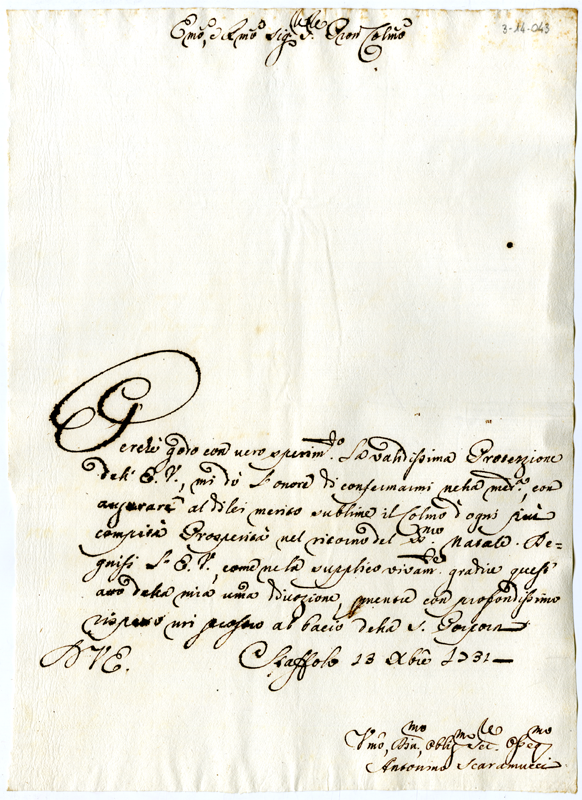 3-14-043
Emo, e Rmo Sig.r S. Pron Colmo
Perche godo con vero sperim.to la validissima Protezzione
dell' E. V., mi dò l' onore di confermarmi nella med.a, con
augurare al di lei merito sublime il Colmo d' ogni più
compita Prosperità nel ritorno del S.mo Natale. De-
gnisi l' E. V., come ne la supplico vivam.te gradire quest'
atto della mia uma divozione, mentre con profondissimo
rispetto mi prostro al bacio della S. Porpora
D V E.
Staffolo 13 Xbre 1731
Vmo, Div.mo, Obblig.mo Ser. Osseq.mo
Antonino Scaramucci